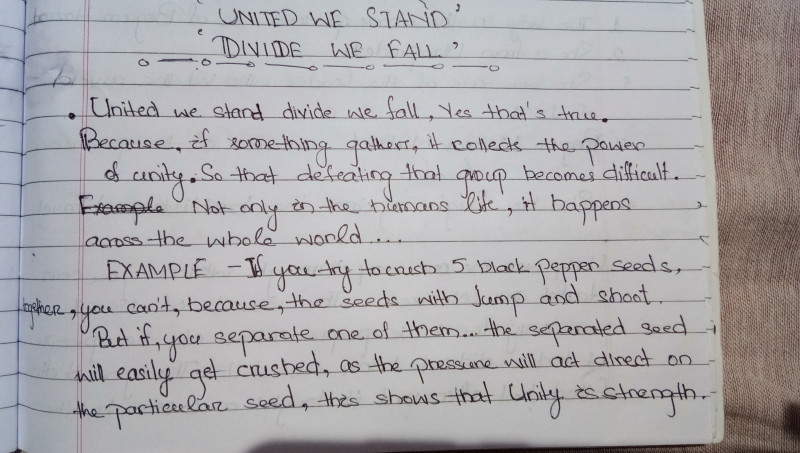 'UNITED WE STAND'
'DIVIDE WE FALL'
• United we stand divide we fall, Yes that's true.
Because, if something gathers, it collects the power
of unity. So that defeating that group becomes difficult.
Example Not only in the humans life, it happens
across the whole world....
EXAMPLE - If you try to crush 5 black pepper seeds,
together, you can't, because, the seeds with Jump and shoot.
But if, you separate one of them... the separated seed
will easily get crushed, as the pressure will act direct on
the particular seed, this shows that Unity is strength.